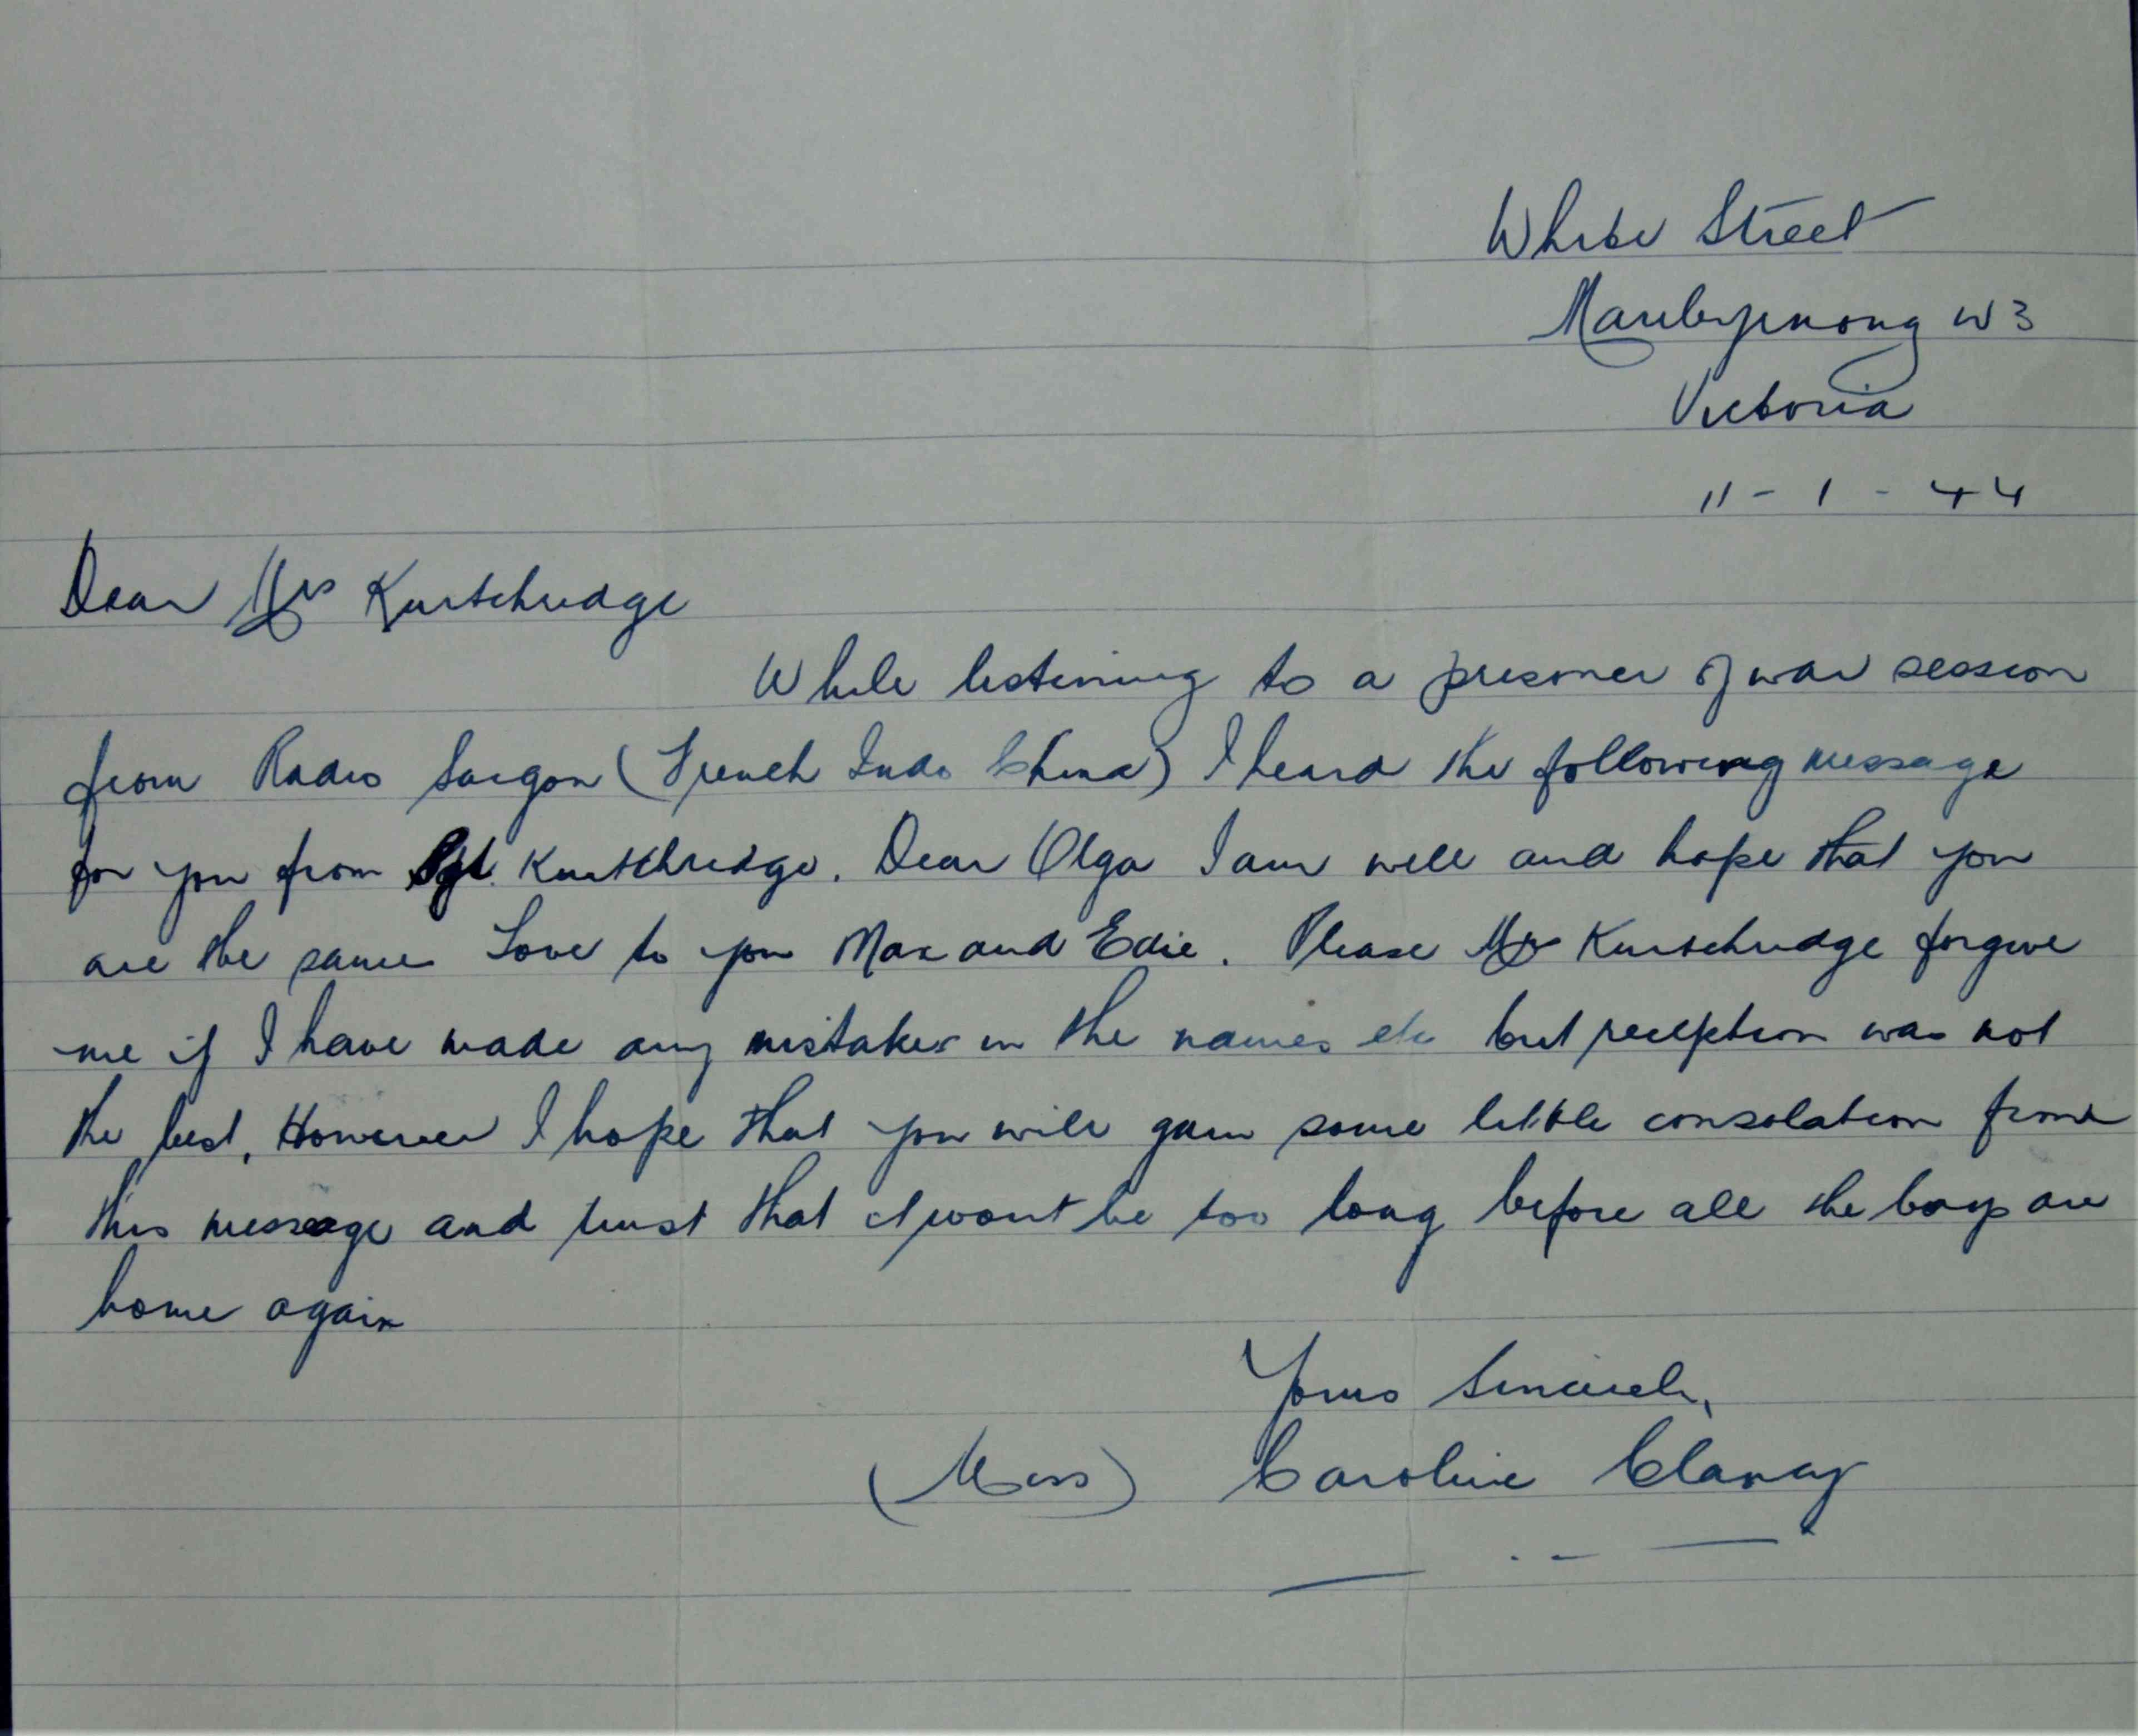 White Street
Maribyrnong W3
Victoria
11 - 1 - 44
Dear Mrs Kurtchridge
While listening to a prisoner of war session
from Radio Saigon (French Indo China) I heard the following message
for you from Sgt. Kurtchridge. Dear Olga I am well and hope that you
are the same Love to you Max and Edie. Please Mrs Kurtchridge forgive
me if I have made any mistakes in the names etc but reception was not
the best, However I hope that you will gain some little consolation from
this message and trust that it wont be too long before all the boys are
home again
Yours Sincerely,
(Miss) Caroline Clancy